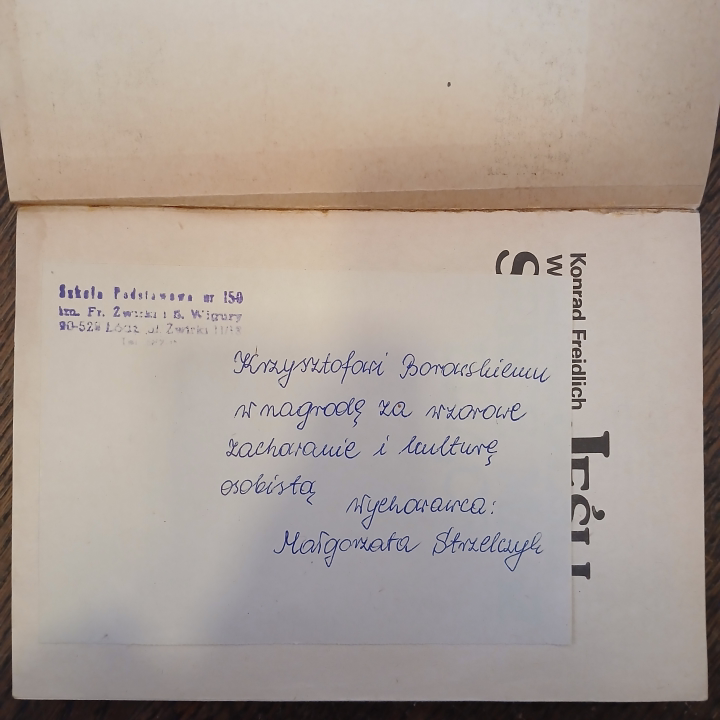 Szkoła Podstawowa nr 150
im. Fr. Żwirki i S. Wigury
90-528 Łódź ul. Żwirki 11/13
Krzysztofowi Borowskiemu
w nagrodę za wzorowe
zachowanie i kulturę
osobistą
Wychowawca:
Małgorzata Strzelczyk
Konrad Freidlich
W
S
JEŚLI